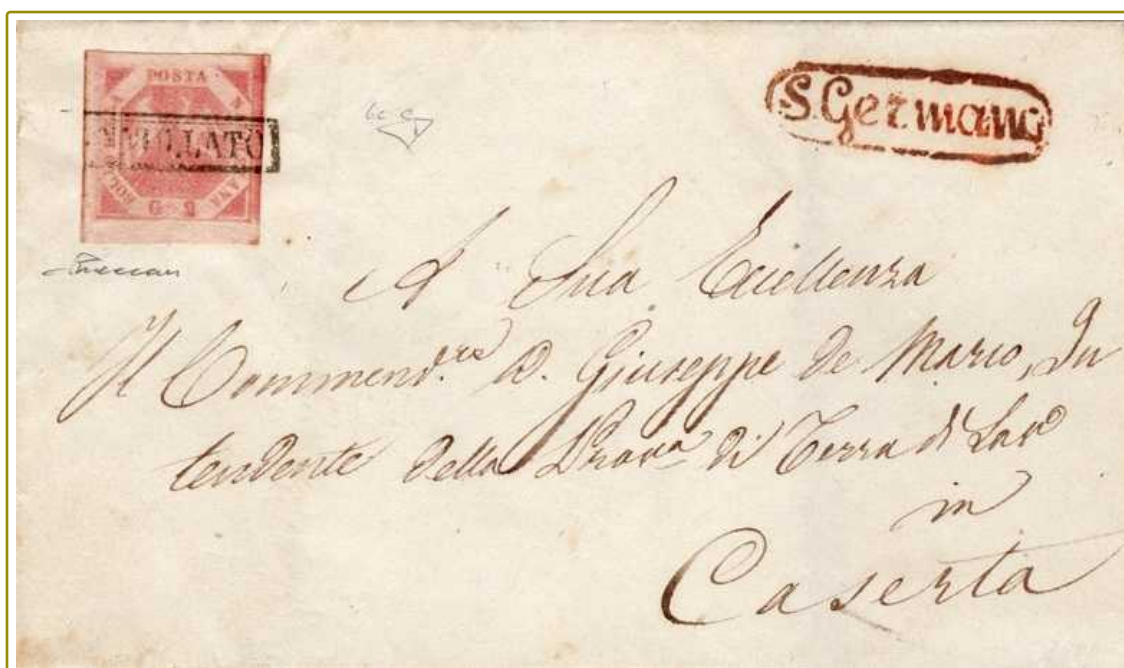 POSTA
ANNULLATO
BOLLO
G 2
S. Germano
A Sua Eccellenza
Il Commend.re D. Giuseppe de Marco, In
tendente della Prov.a di Terra di Lav.o
in
Caserta